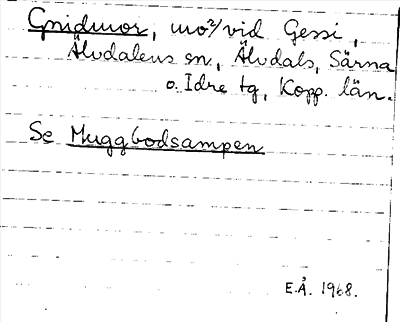 Gnidmor, mo²/vid Gessi,
Älvdalens sn, Älvdals, Särna
o. Idre tg, Kopp. län.
Se Muggbodsampen
E.Å. 1968.